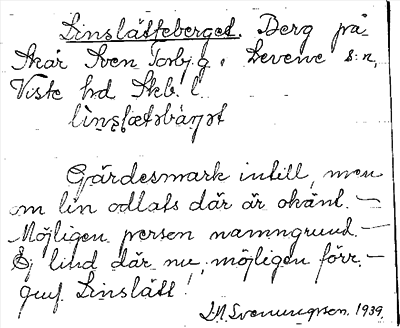 Linslätteberget. Berg på
Skår Sven Torbj.g. Levene s:n,
Viste hd Skb. l.

Gärdesmark intill, men
om lin odlats där är okänt. —
Möjligen person namngrund. —
Ej lind där nu, möjligen förr. —
Linslätt!
1939